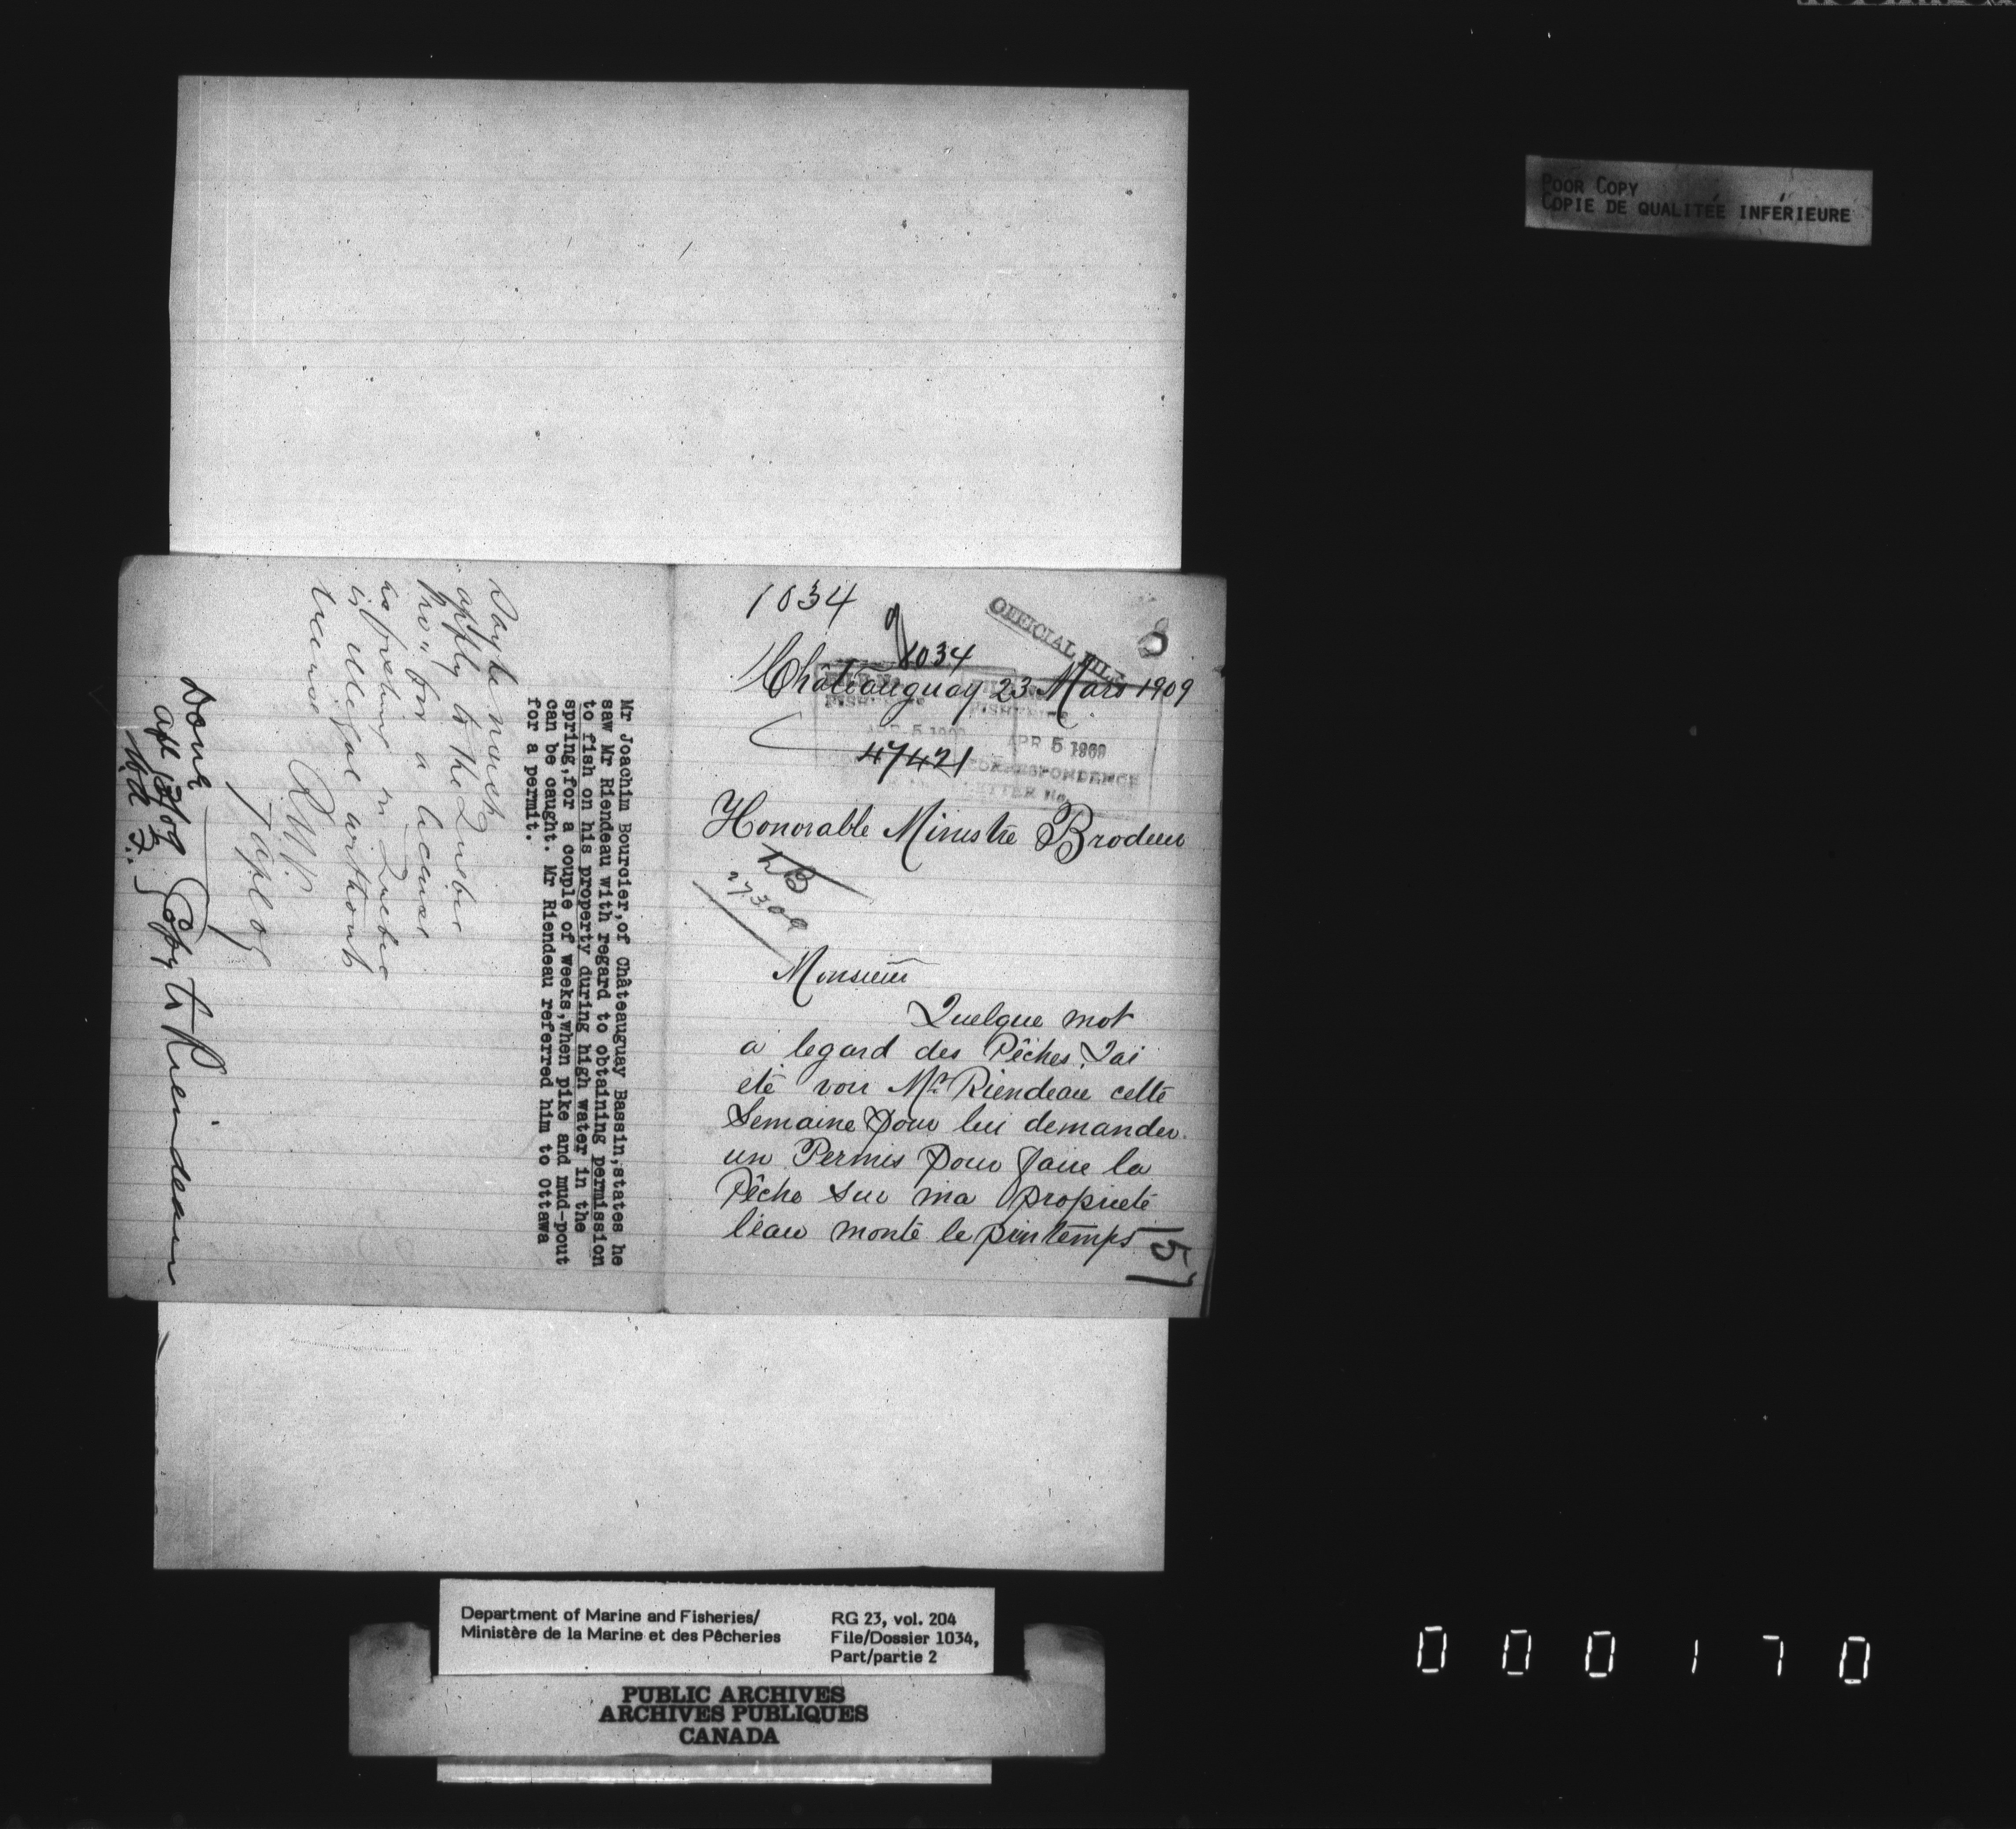 POOR COPY
COPIE DE QUALITÉE INFÉRIEURE
1034
1034
OFFICIAL FILE
Châteauguay 23 Mars 1909
FISHERIES
FISHERIES
APR 5 1909
APR 5 1909
47421
CORRESPONDENCE
LETTER No.
Honorable Ministre Brodeur
Monsieur
Quelque mot
a legard des Pêches. Jai
eté voir Mr. Riendeau cette
Semaine pour lui demander
un Permis pour faire la
Pêche sur ma propriete
leau monte le printemps
15
Mr Joachim Bourcier,of Châteauguay Bassin,states he
saw Mr Riendeau with regard to obtaining permission
to fish on his property during high water in the
spring,for a couple of weeks,when pike and mud-pout
can be caught. Mr Riendeau referred him to Ottawa
for a permit.
Say he must
apply to the Quebec
for a license
as fishing in Quebec
is illegal without
license
7 apl 09
Done
apl 13/09
Copy to Rieindeau
Department of Marine and Fisheries/
Ministère de la Marine et des Pêcheries
RG 23, vol. 204
File/Dossier 1034,
Part/partie 2
PUBLIC ARCHIVES
ARCHIVES PUBLIQUES
CANADA
000170